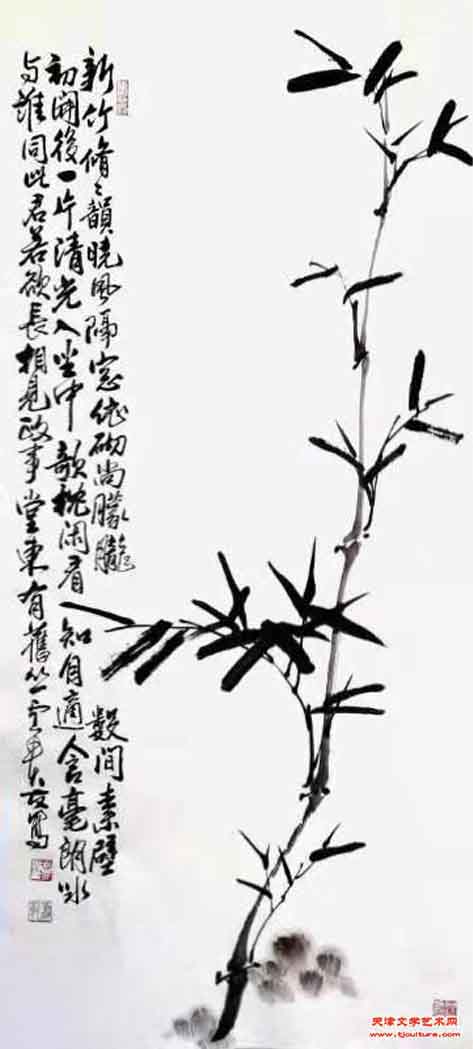 新竹脩〻韻曉風隔窓依砌尚朦朧數間素壁
初開後一片清光入坐中欹枕闲看知自適含毫朗咏
与誰同此君若欲長相見政事堂東有舊丛寫
天津文学艺术网
www.tjculture.com